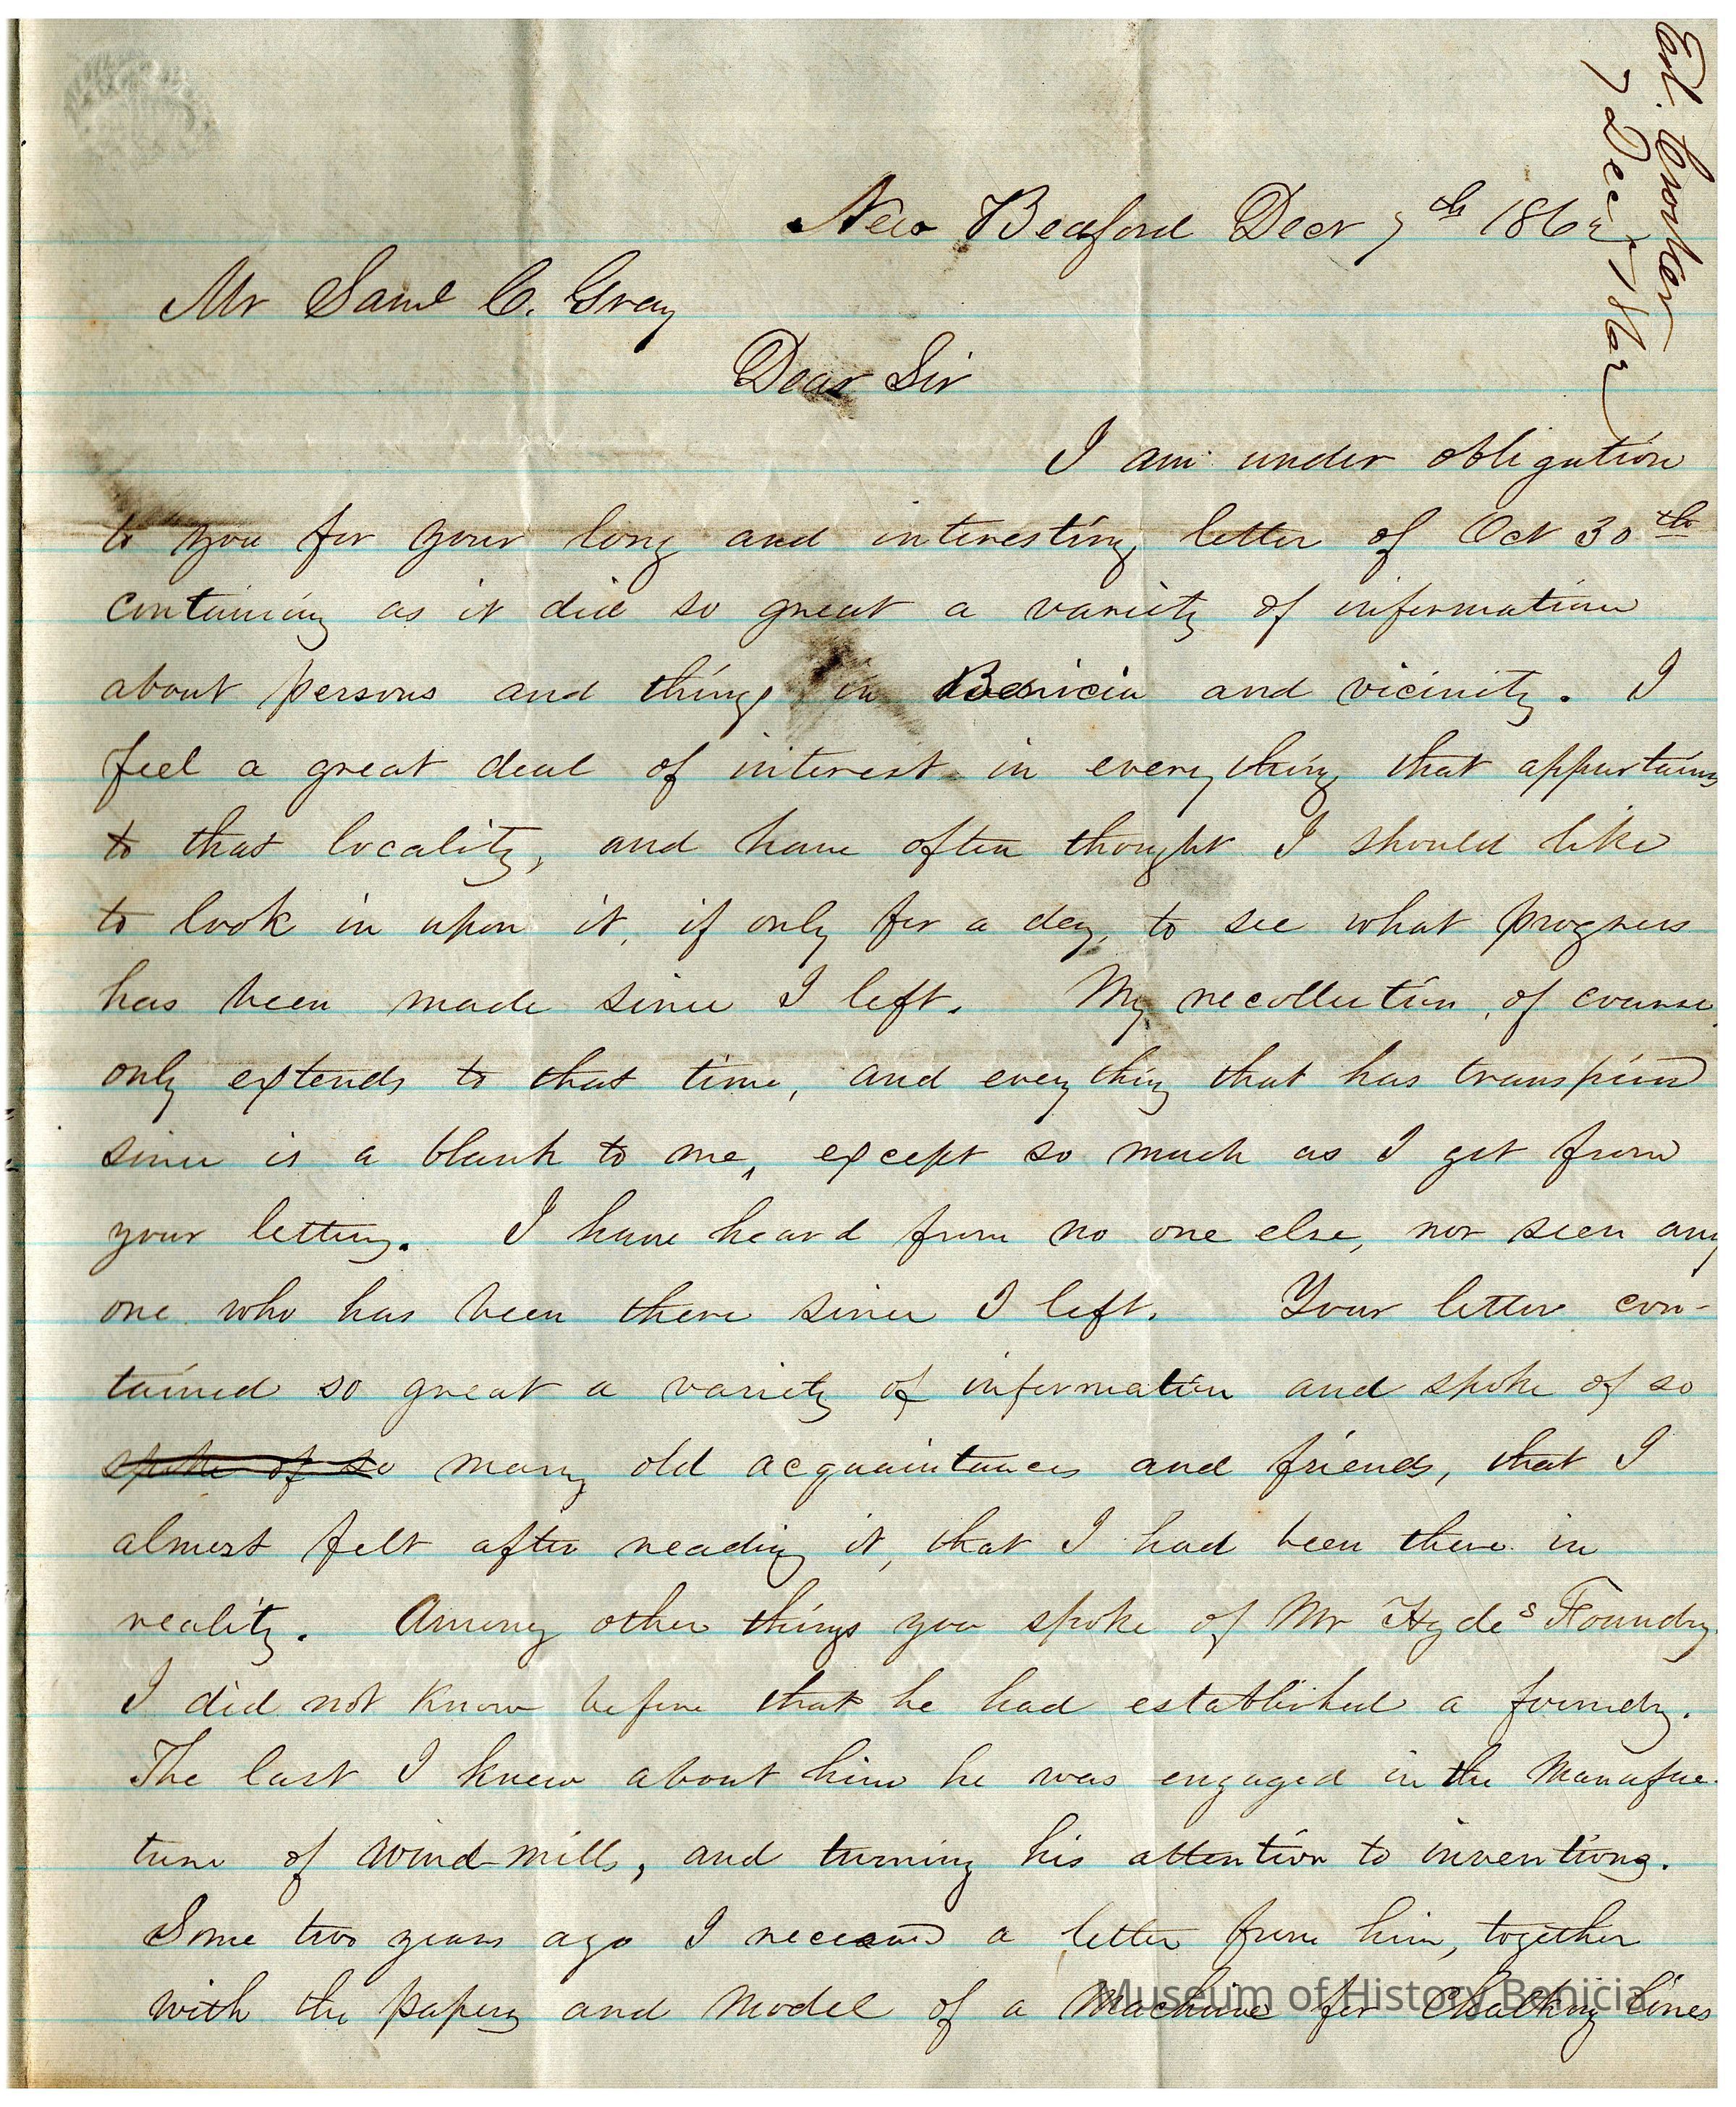 Ed. Crocker
7 Dec
New Bedford Decr 7th 186
Mr Saml C. Gray
Dear Sir
I am under obligation
to you for your long and interesting letter of Oct 30th
containing as it did so great a variety of information
about persons and things in Benicia and vicinity. I
feel a great deal of interest in every thing that appertains
to that locality, and have often thought I should like
to look in upon it, if only for a day, to see what progress
has been made since I left. My recollection, of course,
only extends to that time, and every thing that has transpired
since is a blank to me, except so much as I get from
your letters. I have heard from no one else, nor seen any
one who has been there since I left. Your letter con-
tained so great a variety of information and spoke of so
spoke of so many old acquaintances and friends, that I
almost felt after reading it, that I had been there in
reality. Among other things you spoke of Mr Hydes Foundry.
I did not know before that he had established a foundry.
The last I knew about him he was engaged in the Manufac-
ture of Wind-mills, and turning his attention to inventions.
Some two years ago I received a letter from him, together
with the papers and Model of a Machine for Chalking lines
Museum of History Benicia